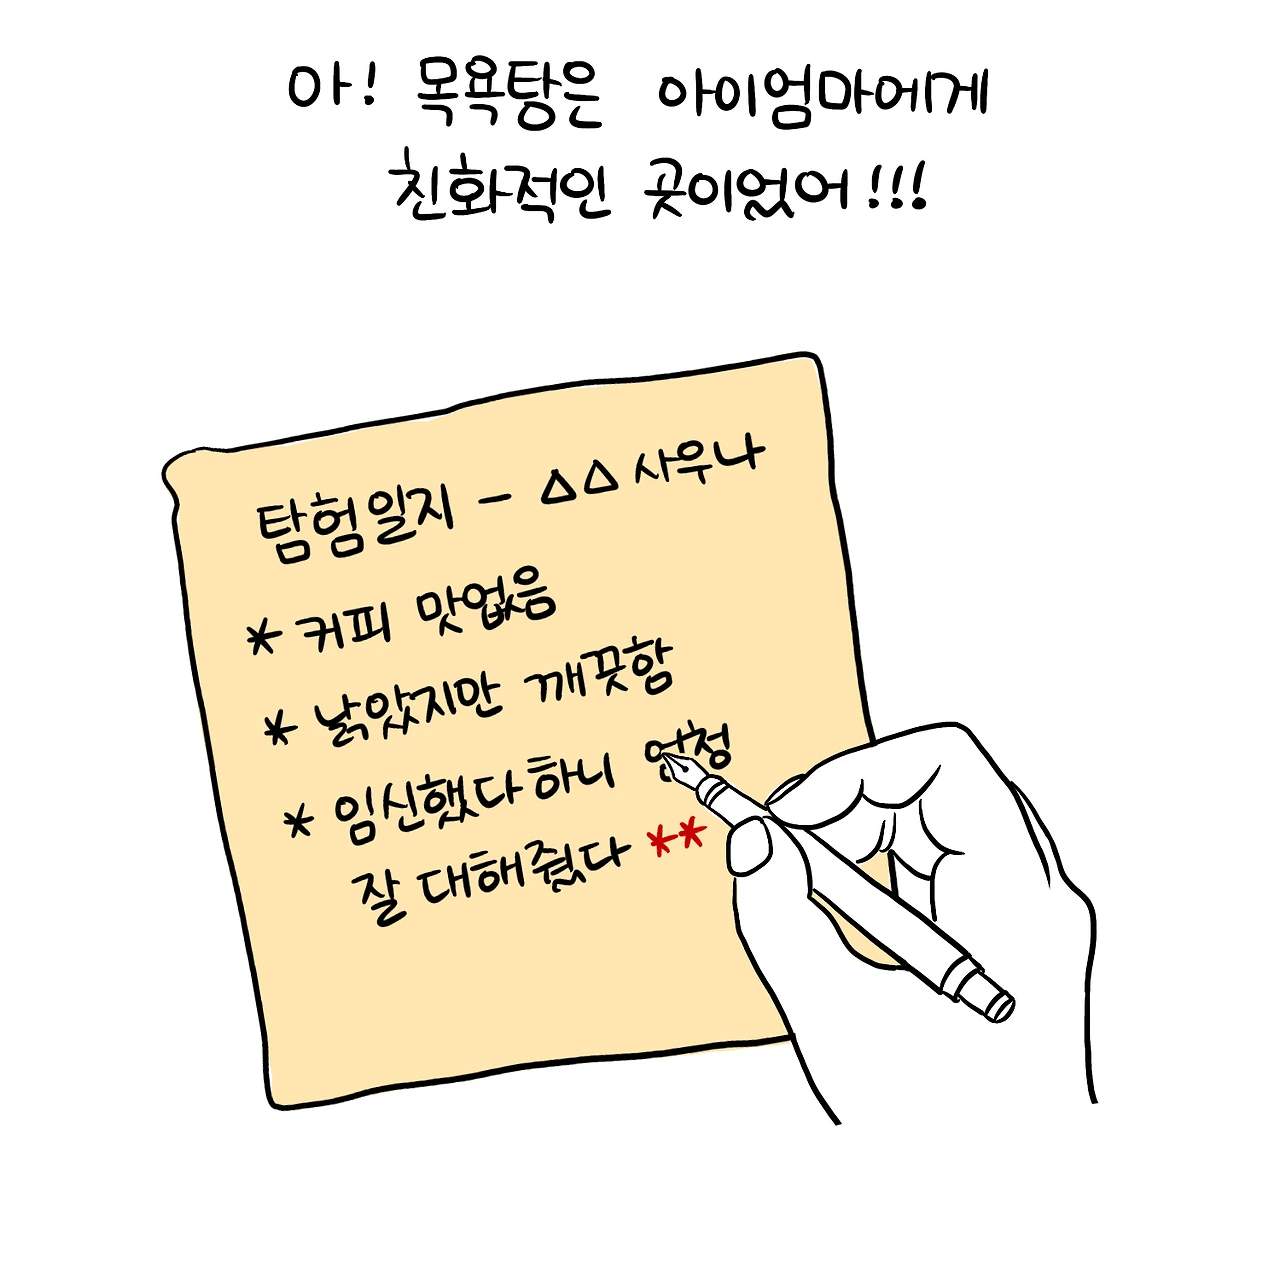 아! 목욕탕은 아이엄마에게
친화적인 곳이었어!!!
탐험일지 - △△사우나
* 커피 맛없음
* 낡았지만 깨끗함
* 임신했다하니 엄청
잘 대해줬다 **